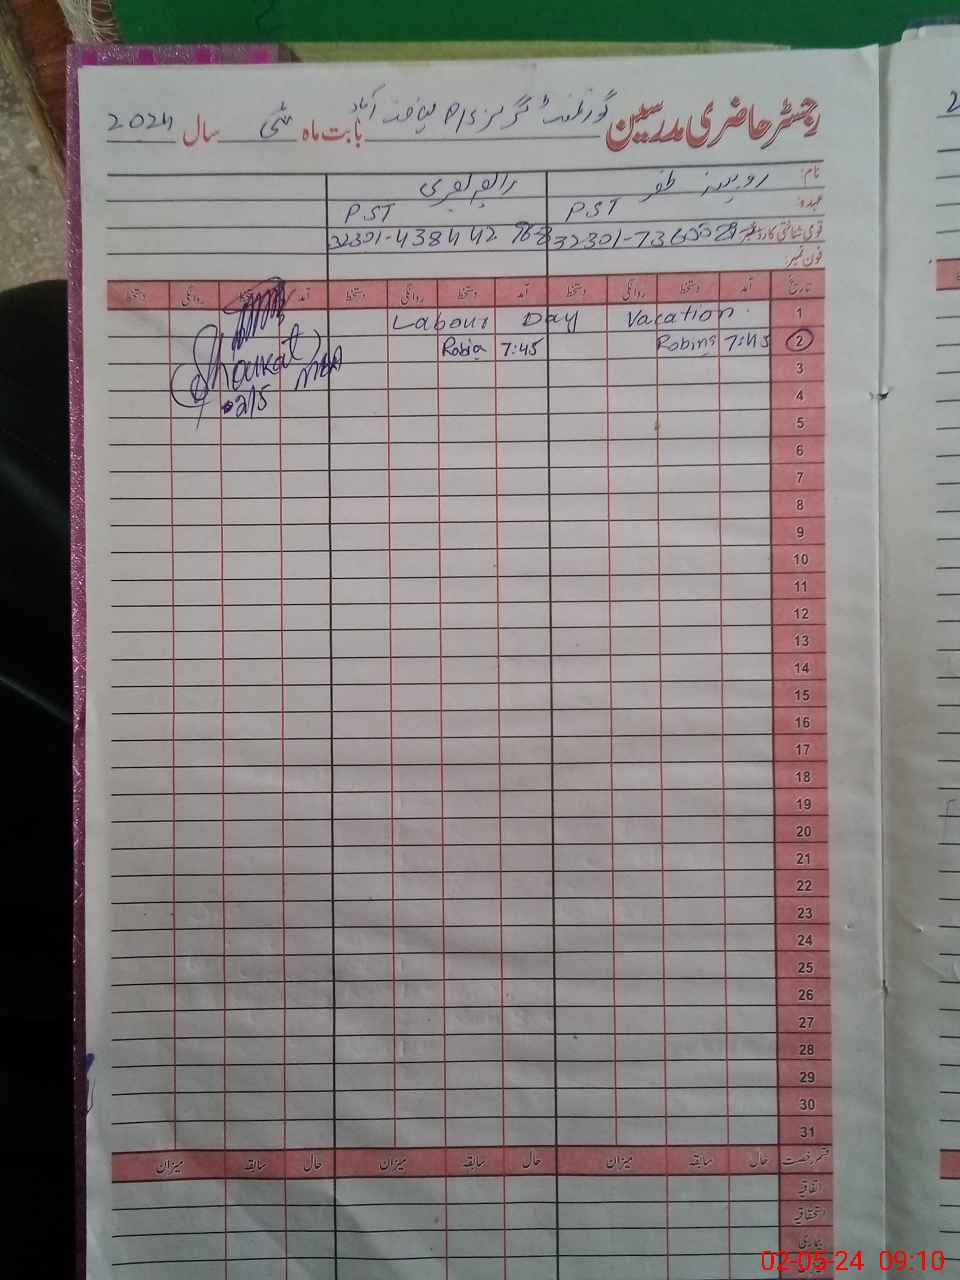 رجسٹر حاضری مدرسین گورنمنٹ گرلز P/S بابت ماہ مئی سال 2024
نام:
عہدہ: PST PST
قومی شناختی کارڈ نمبر
فون نمبر:
تاریخ آمد دستخط روانگی دستخط آمد دستخط روانگی دستخط آمد دستخط روانگی دستخط
1 Labour Day Vacation
2 7:45 Robina 7:45 Robia
Shoukat
2/5
3
4
5
6
7
8
9
10
11
12
13
14
15
16
17
18
19
20
21
22
23
24
25
26
27
28
29
30
31
قسم رخصت حال سابقہ میزان حال سابقہ میزان حال سابقہ میزان
اتفاقیہ
استحقاقیہ
بیماری
02-05-24 09:10